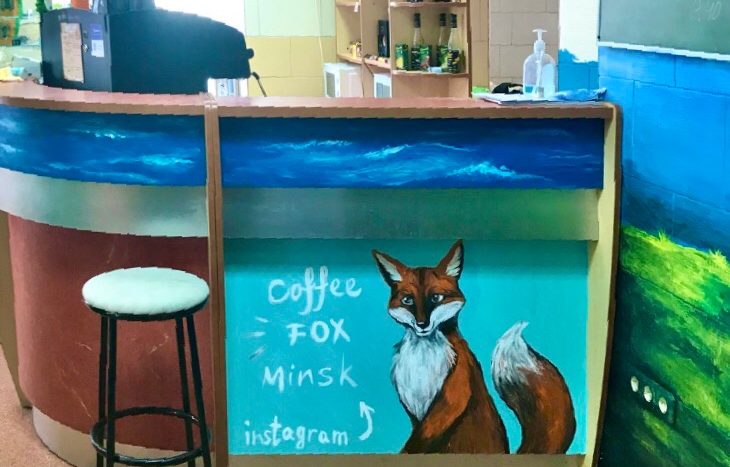 Coffee
FOX
Minsk
instagram